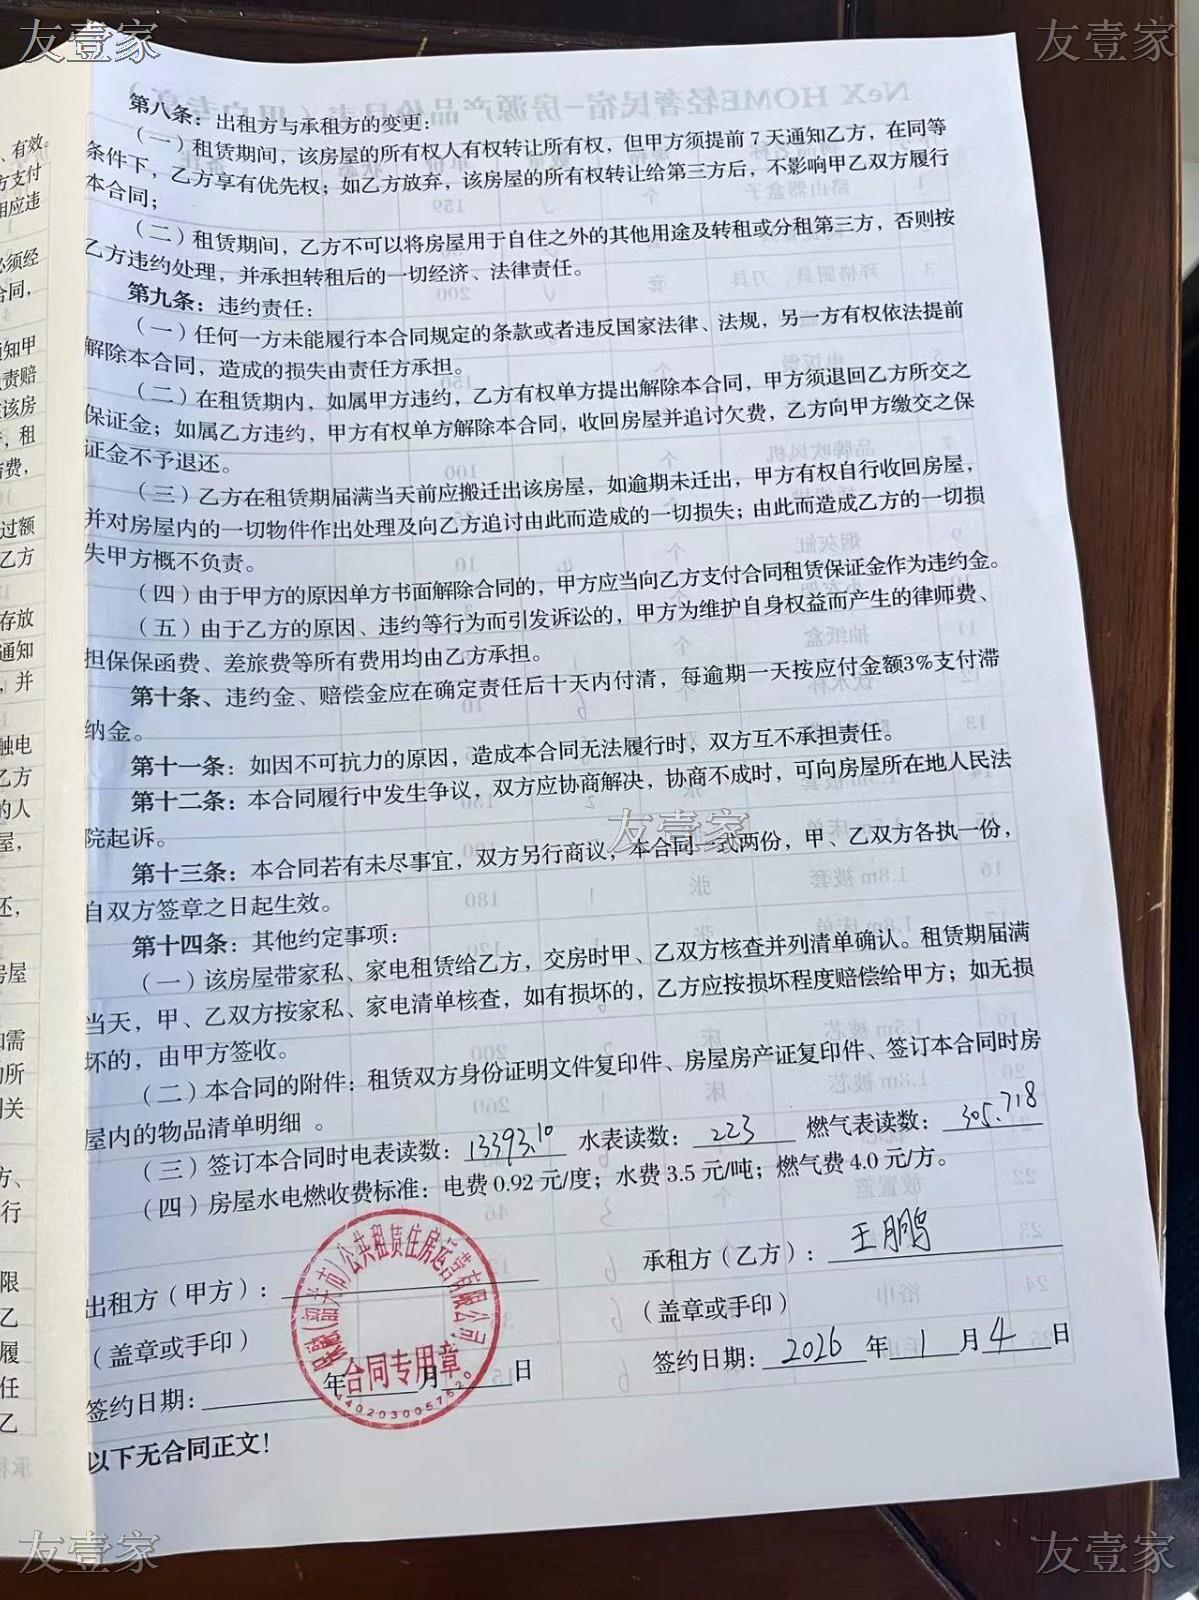 友壹家
友壹家
第八条：出租方与承租方的变更：
（一）租赁期间，该房屋的所有权人有权转让所有权，但甲方须提前 7 天通知乙方，在同等
条件下，乙方享有优先权；如乙方放弃，该房屋的所有权转让给第三方后，不影响甲乙双方履行
本合同；
（二）租赁期间，乙方不可以将房屋用于自住之外的其他用途及转租或分租第三方，否则按
乙方违约处理，并承担转租后的一切经济、法律责任。
第九条：违约责任：
（一）任何一方未能履行本合同规定的条款或者违反国家法律、法规，另一方有权依法提前
解除本合同，造成的损失由责任方承担。
（二）在租赁期内，如属甲方违约，乙方有权单方提出解除本合同，甲方须退回乙方所交之
保证金；如属乙方违约，甲方有权单方解除本合同，收回房屋并追讨欠费，乙方向甲方缴交之保
证金不予退还。
（三）乙方在租赁期届满当天前应搬迁出该房屋，如逾期未迁出，甲方有权自行收回房屋，
并对房屋内的一切物件作出处理及向乙方追讨由此而造成的一切损失；由此而造成乙方的一切损
失甲方概不负责。
（四）由于甲方的原因单方书面解除合同的，甲方应当向乙方支付合同租赁保证金作为违约金。
（五）由于乙方的原因、违约等行为而引发诉讼的，甲方为维护自身权益而产生的律师费、
担保保函费、差旅费等所有费用均由乙方承担。
第十条、违约金、赔偿金应在确定责任后十天内付清，每逾期一天按应付金额3%支付滞
纳金。
第十一条：如因不可抗力的原因，造成本合同无法履行时，双方互不承担责任。
第十二条：本合同履行中发生争议，双方应协商解决，协商不成时，可向房屋所在地人民法
院起诉。
友壹家
第十三条：本合同若有未尽事宜，双方另行商议，本合同一式两份，甲、乙双方各执一份，
自双方签章之日起生效。
第十四条：其他约定事项：
（一）该房屋带家私、家电租赁给乙方，交房时甲、乙双方核查并列清单确认。租赁期届满
当天，甲、乙双方按家私、家电清单核查，如有损坏的，乙方应按损坏程度赔偿给甲方；如无损
坏的，由甲方签收。
（二）本合同的附件：租赁双方身份证明文件复印件、房屋房产证复印件、签订本合同时房
屋内的物品清单明细 。
（三）签订本合同时电表读数：13393.10 水表读数：223 燃气表读数：305.718
（四）房屋水电燃收费标准：电费 0.92 元/度；水费 3.5 元/吨；燃气费 4.0 元/方。
出租方（甲方）：
承租方（乙方）：王鹏
（盖章或手印）
（盖章或手印）
签约日期： 年 月 日
签约日期：2026 年 1 月 4 日
公共租赁住房运营有限公司
合同专用章
4402030057520
以下无合同正文！
友壹家
友壹家